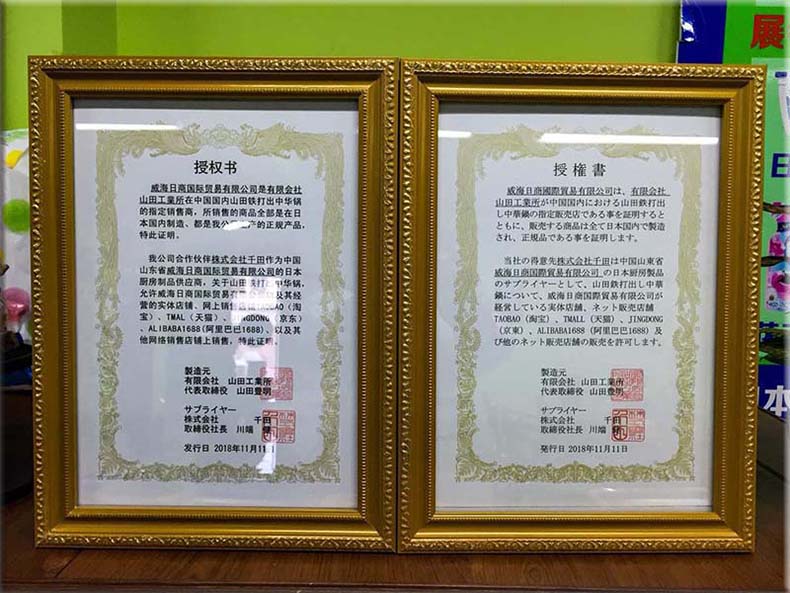 授权书
威海日商国际贸易有限公司是有限会社
山田工業所在中国国内山田鉄打出中华锅
的指定销售商，所销售的商品全部是在日
本国内制造、都是我公 产的正规产品，
特此证明。
我公司合作伙伴株式会社千田作为中国
山东省威海日商国际贸易有限公司的日本
厨房制品供应商，关于山田鉄打出中华锅，
允许威海日商国际贸易有 及其经
营的实体店铺、网上销售店 TAOBAO（淘
宝）、TMAL（天猫）、JINGDONG（京东）
、ALIBABA1688（阿里巴巴1688）、以及其
他网络销售店铺上销售，特此证明。
製造元
有限会社 山田工業所
代表取締役 山田豊明
サプライヤー
株式会社 千田
取締役社長 川端
发行日 2018年11月11日
授権書
威海日商國際貿易有限公司は、有限会社
山田工業所が中国国内における山田鉄打出
し中華鍋の指定販売店である事を証明すると
ともに、販売する商品は全て日本国内で製造
され、正規品である事を証明します。
当社の得意先株式会社千田は中国山東省
威海日商國際貿易有限公司の日本厨房製品
のサプライヤーとして、山田鉄打出し中華
鍋について、威海日商國際貿易有限公司が
経営している実体店舗、ネット販売店舗
TAOBAO（淘宝）、TMALL（天猫）、JINGDONG
（京東）、ALIBABA1688（阿里巴巴1688）及
び他のネット販売店舗の販売を許可します。
製造元
有限会社 山田工業所
代表取締役 山田豊明
サプライヤー
株式会社 千田
取締役社長 川端
発行日 2018年11月11日
展
日
本